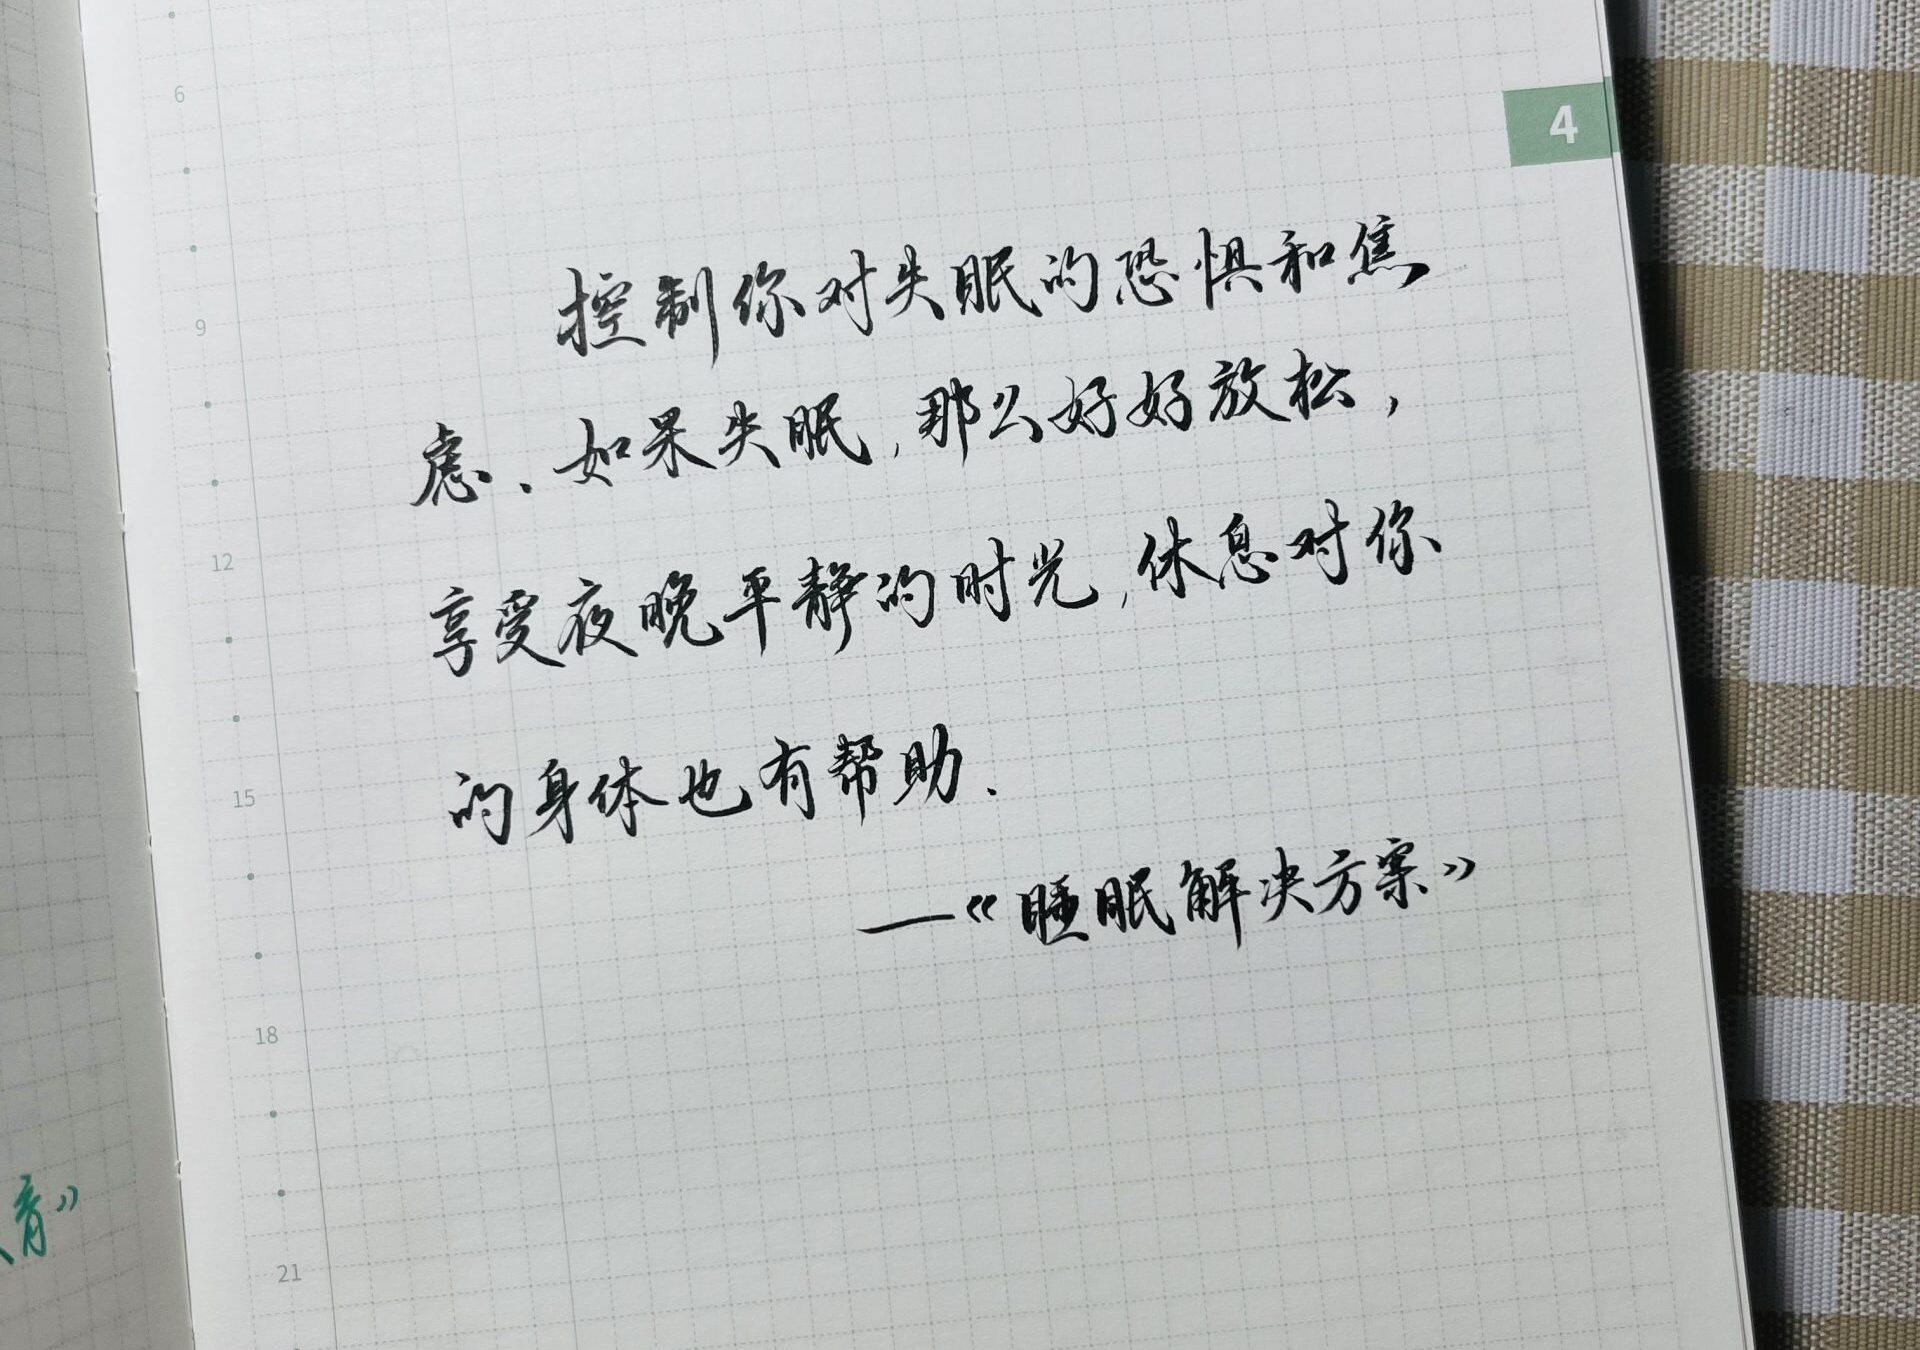 6
4
9
控制你对失眠的恐惧和焦
虑.如果失眠,那么好好放松,
12
享受夜晚平静的时光,休息对你
15
的身体也有帮助.
—《睡眠解决方案》
18
青》
21